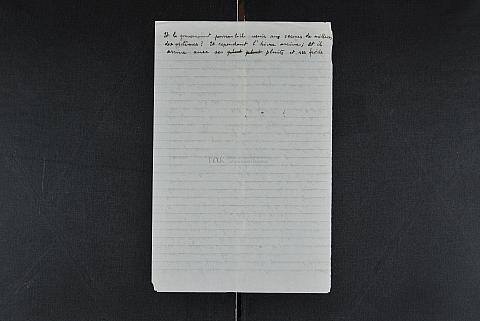 Et le gouvernement pourra-t-il venir aux secours de milliers
des victimes? Et cependant l'hiver arrive; Et il
arrive avec ses pluies et ses froids